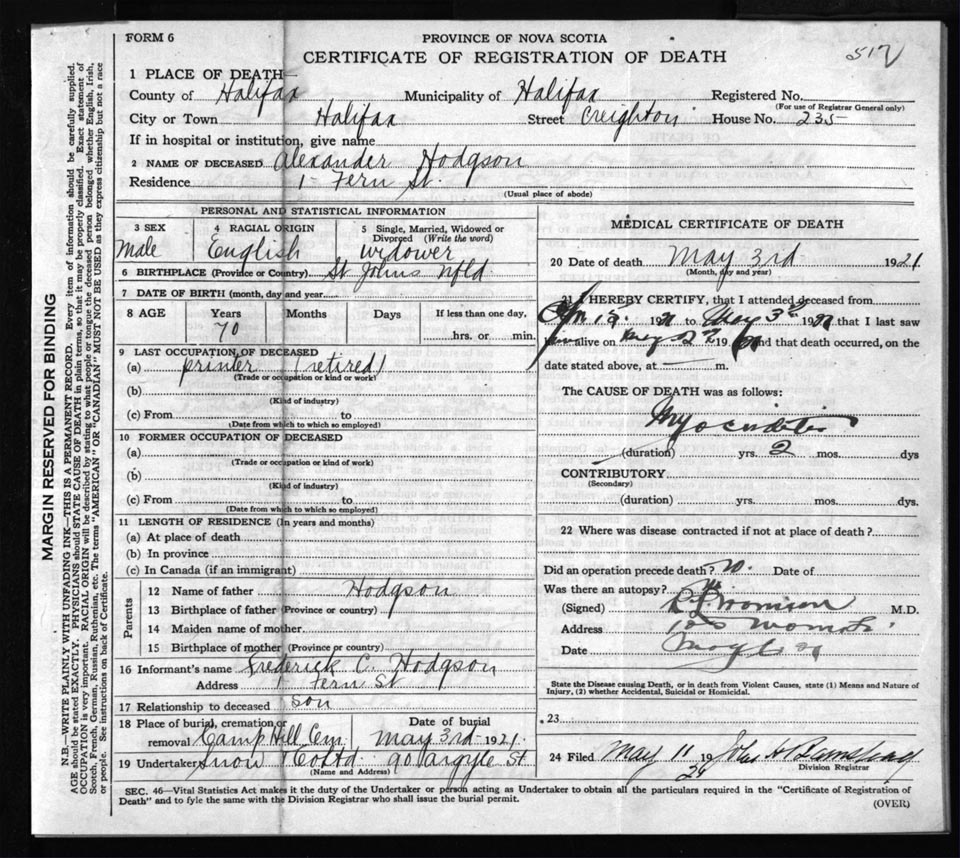 FORM 6
PROVINCE OF NOVA SCOTIA
CERTIFICATE OF REGISTRATION OF DEATH
517
1 PLACE OF DEATH—
County of Halifax Municipality of Halifax Registered No.
(For use of Registrar General only)
City or Town Halifax Street Creighton House No. 235
If in hospital or institution, give name
2 NAME OF DECEASED Alexander Hodgson
Residence 1 Fern St.
(Usual place of abode)
PERSONAL AND STATISTICAL INFORMATION
3 SEX Male
4 RACIAL ORIGIN English
5 Single, Married, Widowed or Divorced (Write the word) widower
6 BIRTHPLACE (Province or Country) St Johns Nfld
7 DATE OF BIRTH (month, day and year)
8 AGE Years 70 Months Days If less than one day, hrs. or min.
9 LAST OCCUPATION OF DECEASED
(a) printer (retired)
(Trade or occupation or kind or work)
(b)
(Kind of industry)
(c) From to
(Date from which to which so employed)
10 FORMER OCCUPATION OF DECEASED
(a)
(Trade or occupation or kind of work)
(b)
(Kind of industry)
(c) From to
(Date from which to which so employed)
11 LENGTH OF RESIDENCE (In years and months)
(a) At place of death
(b) In province
(c) In Canada (if an immigrant)
Parents
12 Name of father Hodgson
13 Birthplace of father (Province or country)
14 Maiden name of mother
15 Birthplace of mother (Province or country)
16 Informant's name Frederick C. Hodgson
Address 1 Fern St
17 Relationship to deceased son
18 Place of burial, cremation or removal Camp Hill Cem
Date of burial May 3rd 1921
19 Undertaker Snow & Co Ltd 90 Argyle St.
(Name and Address)
MEDICAL CERTIFICATE OF DEATH
20 Date of death May 3rd 1921
(Month, day and year)
21 I HEREBY CERTIFY, that I attended deceased from
19 to May 3rd 19 that I last saw
alive on May 2nd 19 and that death occurred, on the
date stated above, at m.
The CAUSE OF DEATH was as follows:
Myocarditis
(duration) yrs. 2 mos. dys
CONTRIBUTORY
(Secondary)
(duration) yrs. mos. dys.
22 Where was disease contracted if not at place of death?
Did an operation precede death? no. Date of
Was there an autopsy? no
(Signed) M.D.
Address
Date
State the Disease causing Death, or in death from Violent Causes, state (1) Means and Nature of
Injury, (2) whether Accidental, Suicidal or Homicidal.
23
24 Filed May 11 19 21 John H
Division Registrar
SEC. 46—Vital Statistics Act makes it the duty of the Undertaker or person acting as Undertaker to obtain all the particulars required in the "Certificate of Registration of
Death" and to fyle the same with the Division Registrar who shall issue the burial permit.
(OVER)
MARGIN RESERVED FOR BINDING
N.B.—WRITE PLAINLY WITH UNFADING INK—THIS IS A PERMANENT RECORD. Every item of information should be carefully supplied.
AGE should be stated EXACTLY. PHYSICIANS should STATE CAUSE OF DEATH in plain terms, so that it may be properly classified. Exact statement of
OCCUPATION is very important. RACIAL ORIGIN will be described by stating to what people or tongue the deceased person belonged whether English, Irish,
Scotch, French, German, Russian, Ruthenian, etc. The terms "AMERICAN" or "CANADIAN" MUST NOT BE USED as they express citizenship but not a race
or people. See instructions on back of Certificate.